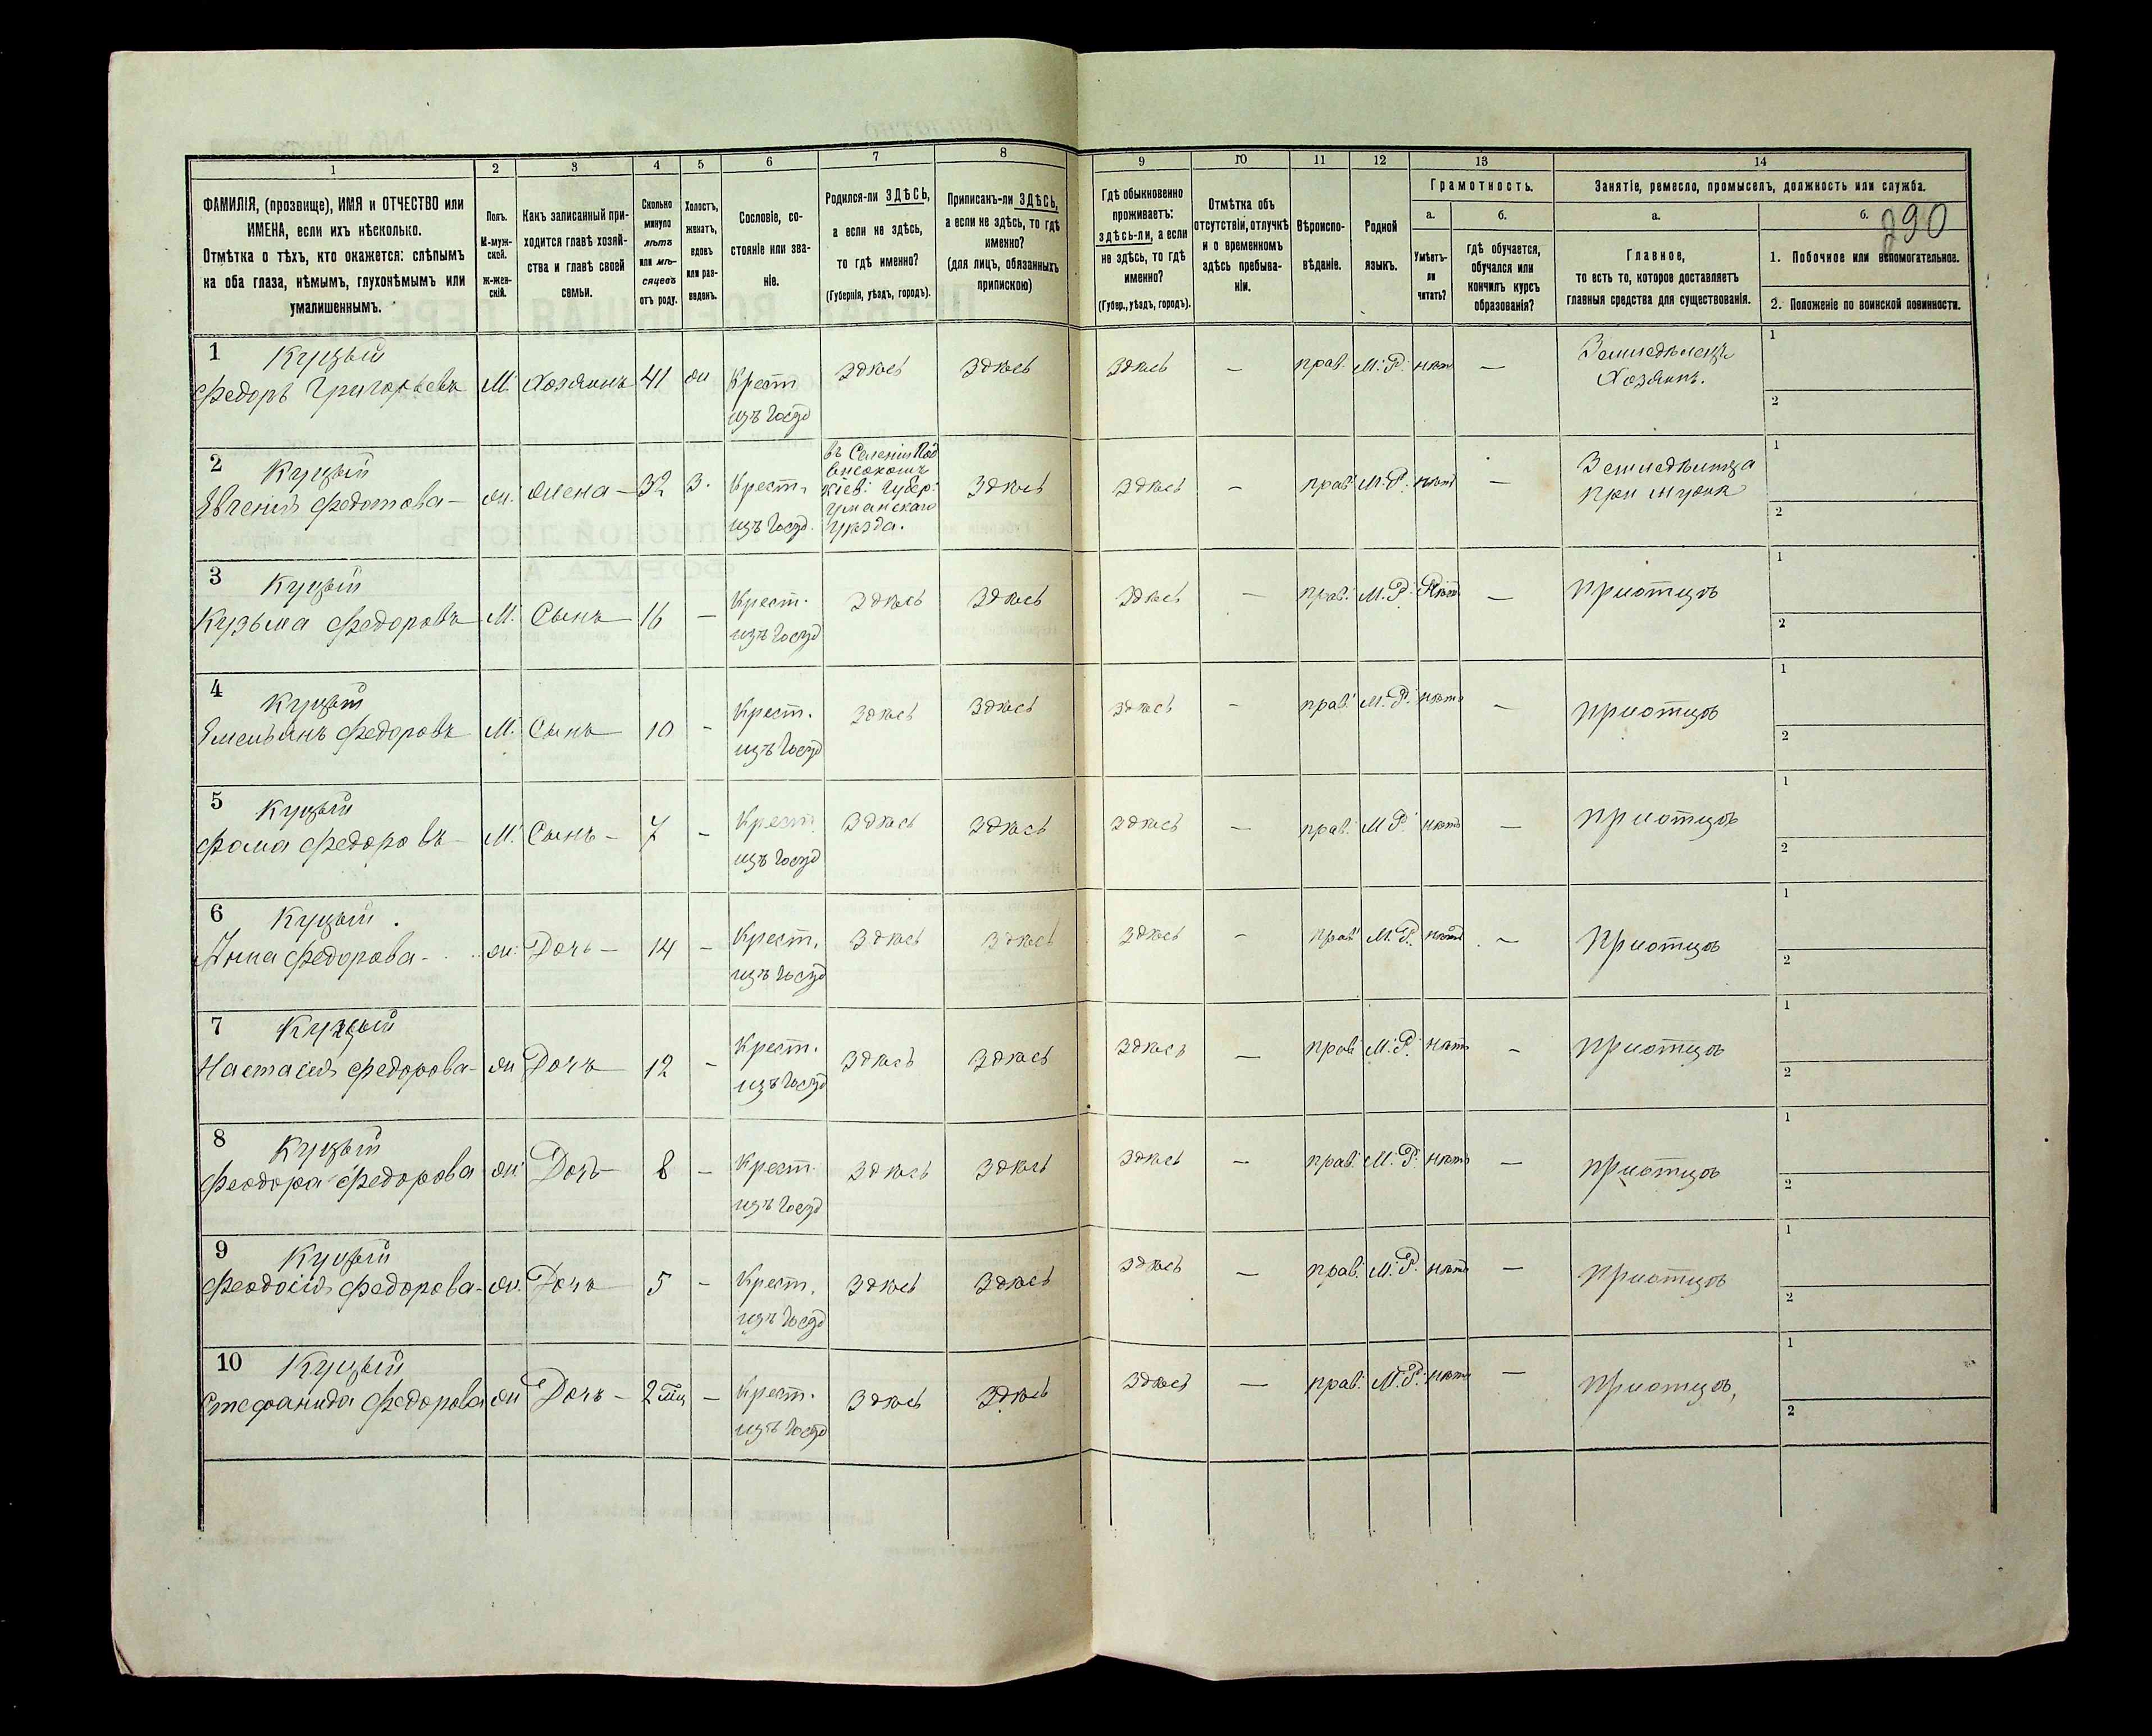 1 2 3 4 5 6 7 8 9 10 11 12 13 14
ФАМИЛІЯ, (прозвище), ИМЯ и ОТЧЕСТВО или
ИМЕНА, если ихъ нѣсколько.
Отмѣтка о тѣхъ, кто окажется: слѣпымъ
на оба глаза, нѣмымъ, глухонѣмымъ или
умалишеннымъ.
Полъ.
М-муж-
ской.
ж-жен-
скій.
Какъ записанный при-
ходится главѣ хозяй-
ства и главѣ своей
семьи.
Сколько
минуло
лѣтъ
или мѣ-
сяцевъ
отъ роду.
Холостъ,
женатъ,
вдовъ
или раз-
веденъ.
Сословіе, со-
стояніе или зва-
ніе.
Родился-ли ЗДѢСЬ,
а если не здѣсь,
то гдѣ именно?
(Губернія, уѣздъ, городъ).
Приписанъ-ли ЗДѢСЬ,
а если не здѣсь, то гдѣ
именно?
(для лицъ, обязанныхъ
припискою)
Гдѣ обыкновенно
проживаетъ:
здѣсь-ли, а если
не здѣсь, то гдѣ
именно?
(Губер., уѣздъ, городъ).
Отмѣтка объ
отсутствіи, отлучкѣ
и о временномъ
здѣсь пребыва-
ніи.
Вѣроиспо-
вѣданіе.
Родной
языкъ.
Грамотность.
а.
Умѣетъ-
ли
читать?
б.
гдѣ обучается,
обучался или
кончилъ курсъ
образованія?
Занятіе, ремесло, промыселъ, должность или служба.
а.
Главное,
то есть то, которое доставляетъ
главныя средства для существованія.
б.
290
1. Побочное или вспомогательное.
2. Положеніе по воинской повинности.
1 Куцый
Федоръ Григорьевъ М. Хозяинъ 41 ж Крест изъ Госуд Здѣсь Здѣсь Здѣсь — прав. М.Р. нѣтъ — Земледѣлецъ Хозяинъ. 1 2
2 Куцый
Евгенія Федотова — ж. жена — 32 З. Крест. изъ Госуд. въ Селеніи Под высокомъ Кіев. Губер. Уманскаго Уѣзда. Здѣсь Здѣсь — прав. М.Р. нѣтъ — при мужѣ 1 2
3 Куцый
Кузьма Федоровъ М. Сынъ 16 — Крест. изъ Госуд Здѣсь Здѣсь Здѣсь — прав. М.Р. Нѣтъ — При отцѣ 1 2
4 Куцый
Емельянъ Федоровъ М. Сынъ 10 — Крест. изъ Госуд Здѣсь Здѣсь Здѣсь — прав. М.Р. нѣтъ — При отцѣ 1 2
5 Куцый
Фома Федоровъ — М. Сынъ — 7 — Крест. изъ Госуд Здѣсь Здѣсь Здѣсь — прав. М.Р. нѣтъ — При отцѣ 1 2
6 Куцый.
Анна Федорова — ж. Дочь — 14 — Крест. изъ Госуд Здѣсь Здѣсь Здѣсь — прав. М.Р. нѣтъ — При отцѣ 1 2
7 Куцый
Настасія Федорова — ж Дочь 12 — Крест. изъ Госуд Здѣсь Здѣсь Здѣсь — прав. М.Р. нѣтъ — При отцѣ 1 2
8 Куцый
Феодора Федорова ж. Дочь — 8 — Крест. изъ Госуд Здѣсь Здѣсь Здѣсь — прав. М.Р. нѣтъ — При отцѣ 1 2
9 Куцый
Феодосія Федорова — ж. Дочь 5 — Крест. изъ Госуд Здѣсь Здѣсь Здѣсь — прав. М.Р. нѣтъ — При отцѣ 1 2
10 Куцый
Стефанида Федорова ж Дочь — 2 мц — Крест. изъ Госуд Здѣсь Здѣсь Здѣсь — прав. М.Р. нѣтъ — При отцѣ, 1 2